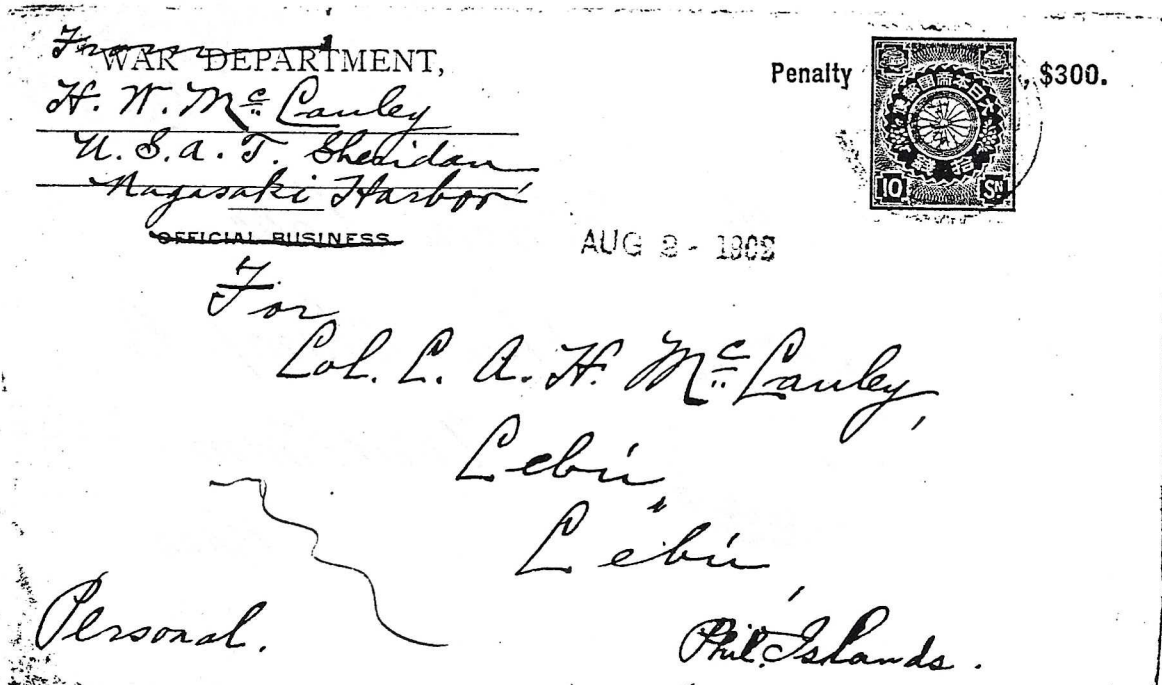 From
WAR DEPARTMENT,
H. W. McCauley
U.S.A.T. Sheridan
Nagasaki Harbor
OFFICIAL BUSINESS.
Penalty , $300.
大日本帝國郵便
拾錢
10 SN
AUG
For
Col. C. A. H. McCauley,
Cebú,
Cebú,
Phil. Islands.
Personal.